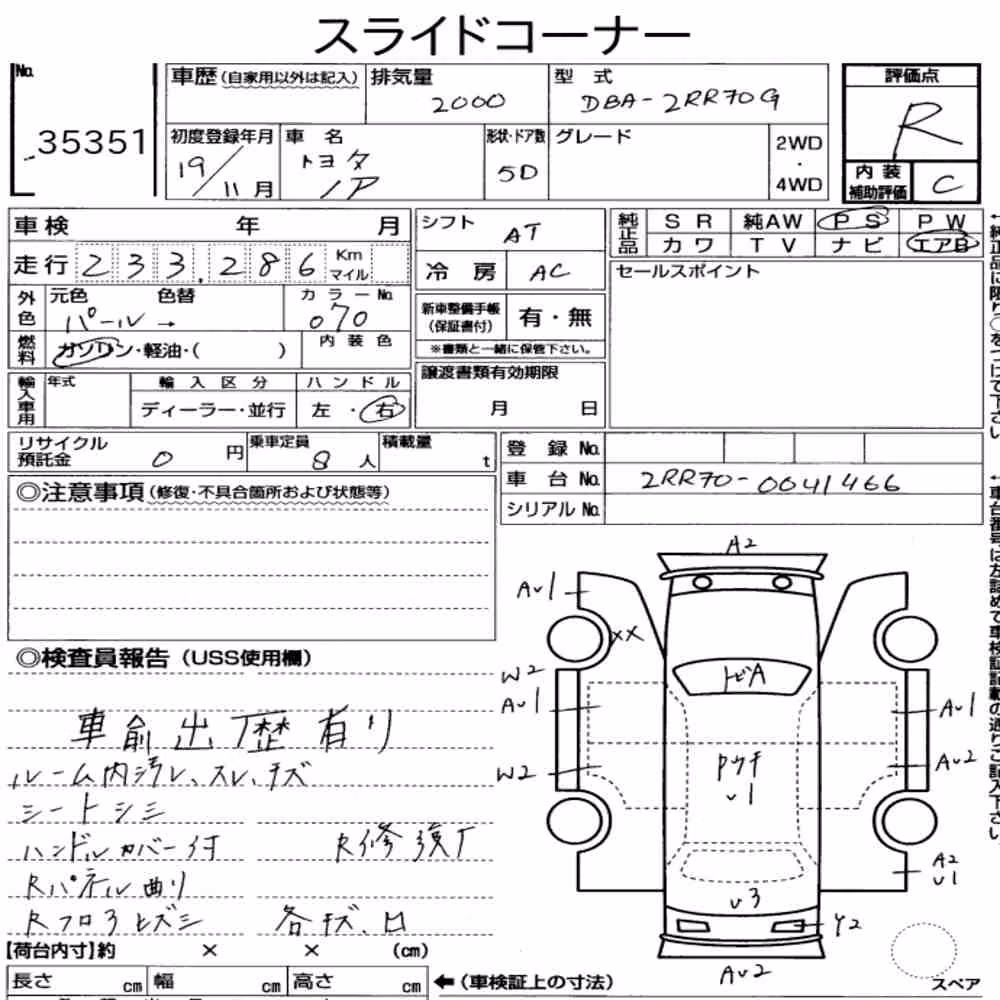 スライドコーナー
No.
35351
車歴(自家用以外は記入)
排気量
2000
型 式
DBA-2RR70G
評価点
R
初度登録年月
19/11月
車 名
トヨタ
ノア
形状・ドア数
5D
グレード
2WD
・
4WD
内装
補助評価
C
車検 年 月
シフト
AT
純正品
SR 純AW PS PW
カワ TV ナビ エアB
走行 233,286 Km マイル
冷房 AC
セールスポイント
外色
元色 色替 カラーNo.
パール→ 070
新車整備手帳
(保証書付)
有・無
※書類と一緒に保管下さい。
燃料
ガソリン・軽油・( )
内装色
譲渡書類有効期限
月 日
輸入車用
年式
輸入区分
ハンドル
ディーラー・並行
左・右
リサイクル
預託金
0円
乗車定員
8人
積載量
t
登録No.
車台No. 2RR70-0041466
シリアルNo.
◎注意事項(修復・不具合箇所および状態等)
A2
AU1
XX
◎検査員報告(USS使用欄)
W2
AU1
トビA
AU1
車輸出歴有り
AU2
ルーム内汚レ、スレ、キズ
W2
U1
シートシミ
ハンドルカバー付
R修復
Rパネル曲り
A2
U1
U3
各キズ、凹
Y2
【荷台内寸】約 × × (cm)
AU2
長さ cm 幅 cm 高さ cm
←(車検証上の寸法)
スペア